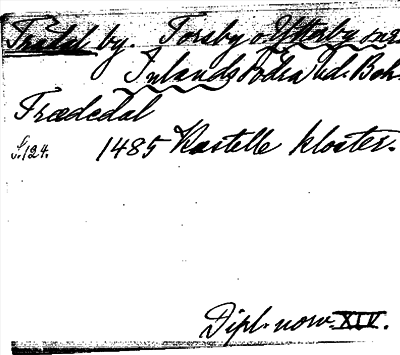 Trädal by. Torsby o. Ytterby snr
Inlands Södra hd. Boh.
Trædedal
s. 124. 1485 Kastelle kloster.
Dipl. norv. XIV.